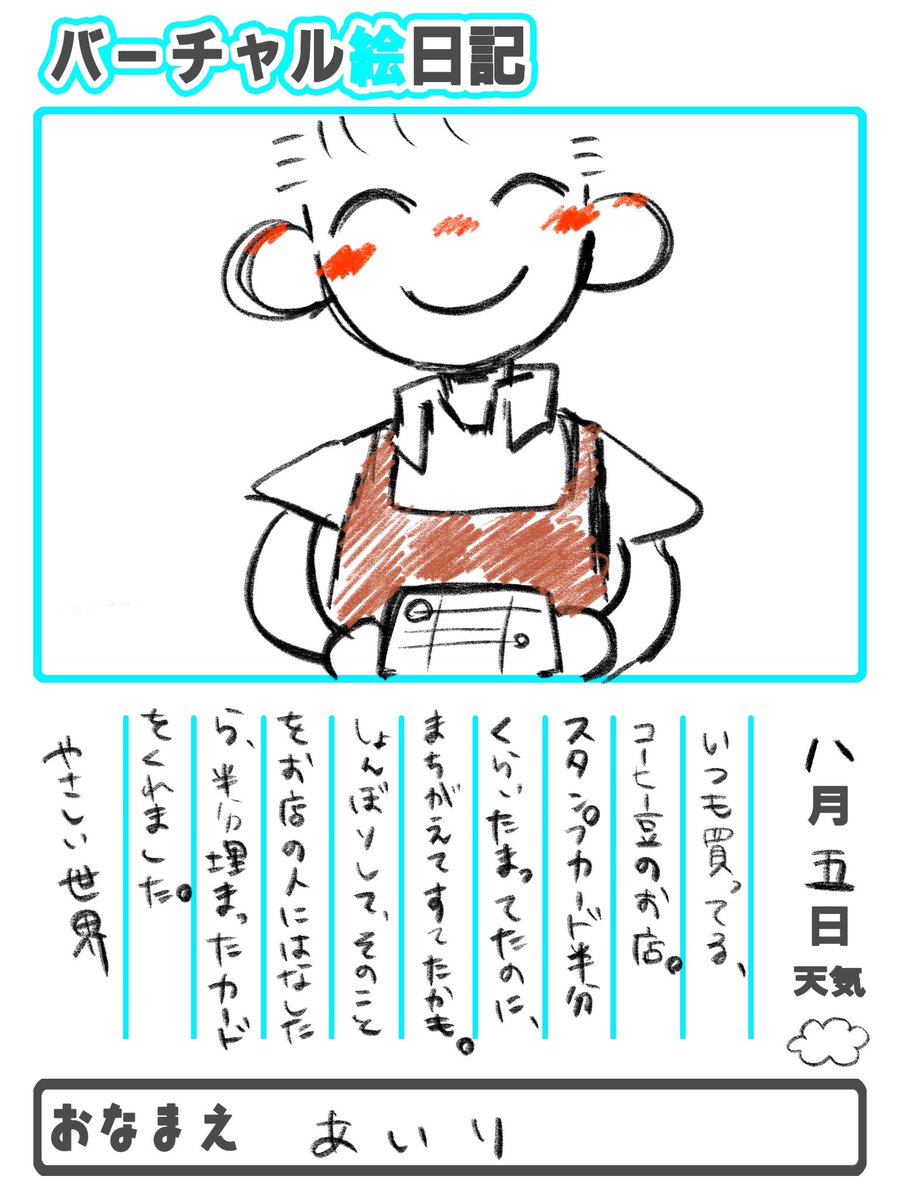 バーチャル絵日記
八月五日
天気
いつも買ってる、
コーヒー豆のお店。
スタンプカード半分
くらいたまってたのに、
まちがえてすてたかも。
しょんぼりして、そのこと
をお店の人にはなした
ら、半分埋まったカード
をくれました。
やさしい世界
おなまえ あいり